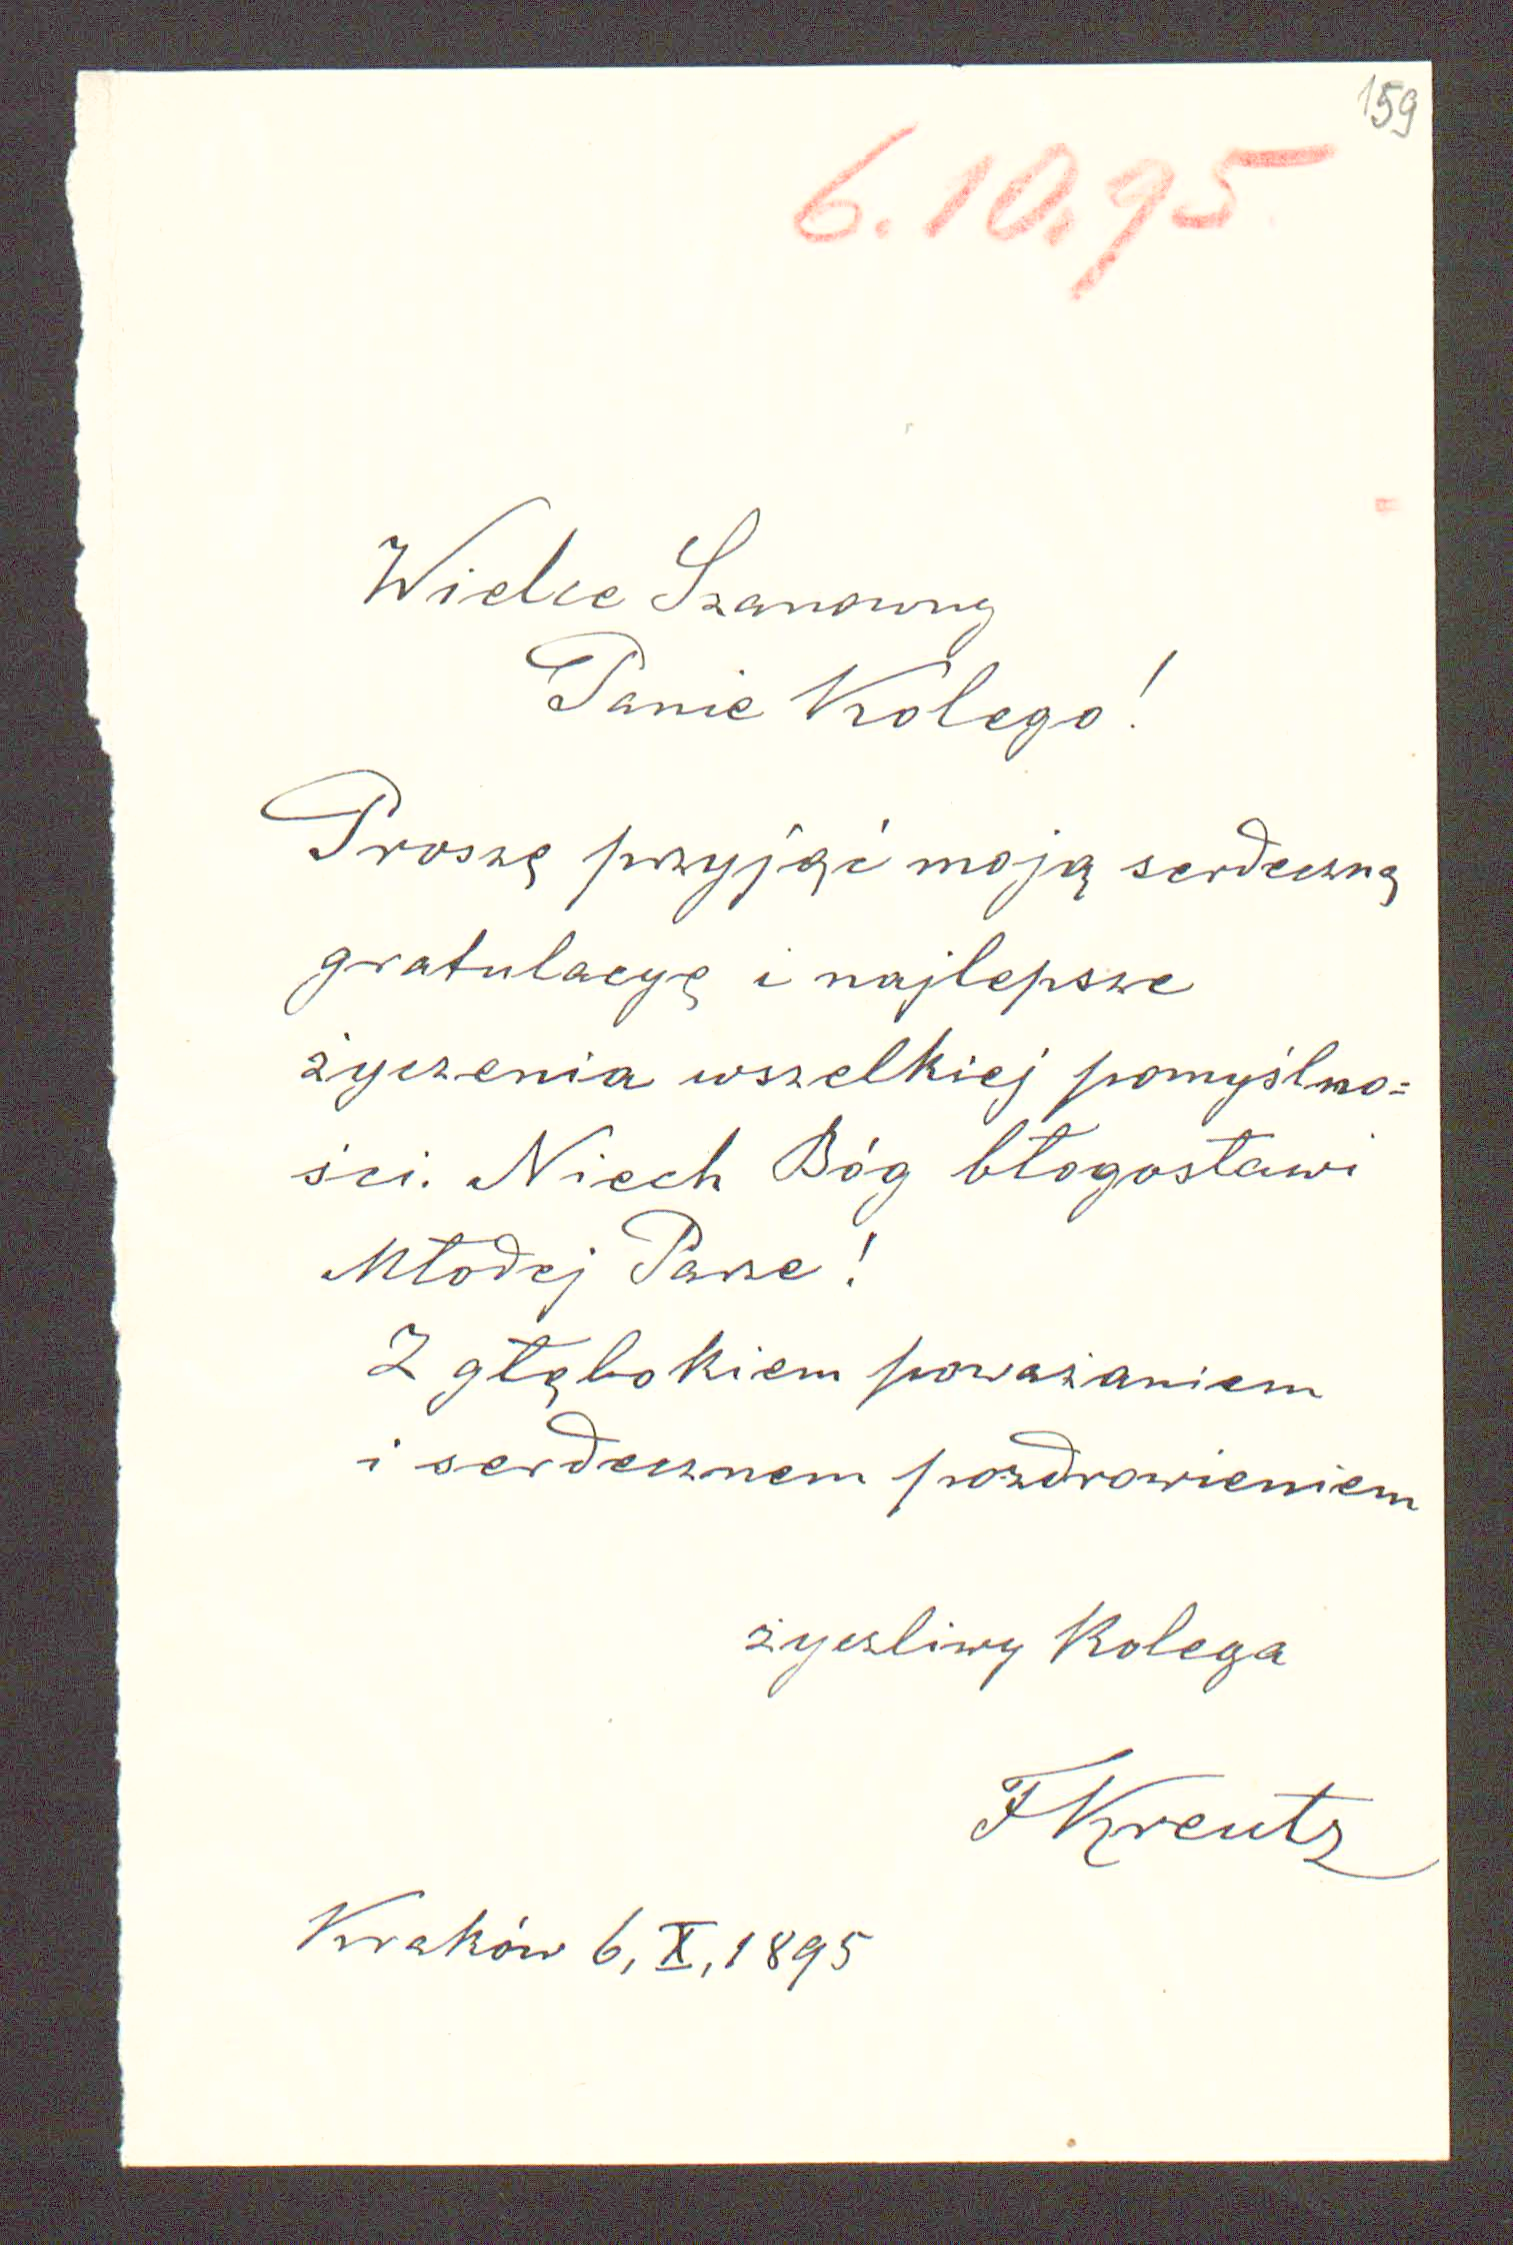 159
6.10.95
Wielce Szanowny
Panie Kolego!
Proszę przyjąć moją serdeczną
gratulacyę i najlepsze
życzenia wszelkiej pomyślno=
ści. Niech Bóg błogosławi
Młodej Parze!
Z głębokiem poważaniem
i serdecznem pozdrowieniem
życzliwy Kolega
FKreutz
Kraków 6, X, 1895